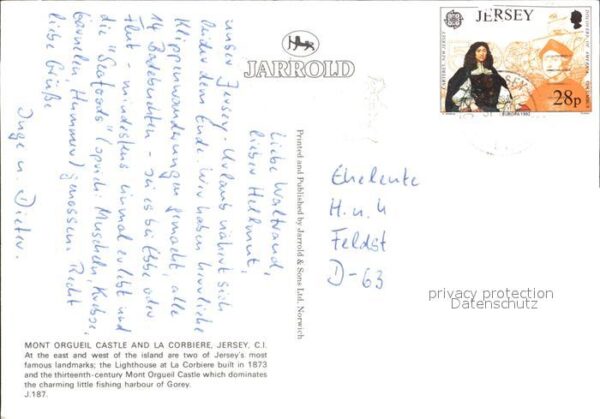 JARROLD
JERSEY
CARTERET, NEW JERSEY
28p
EUROPA 1992
Printed and Published by Jarrold & Sons Ltd, Norwich
Liebe Waltraud,
lieber Hellmut,
unser Jersey-Urlaub nähert sich
leider dem Ende. Wir haben herrliche
Klippenwanderungen gemacht, alle
14 Badebuchten - sei es bei Ebbe oder
Flut - mindestens einmal erlebt und
die "Seafoods" (sprich Muscheln, Krebse,
Hummer) genossen. Recht
liebe Grüße
Inge u. Dieter.
Eheleute
H. u. U
Feldst
D-63
privacy protection
Datenschutz
MONT ORGUEIL CASTLE AND LA CORBIERE, JERSEY, C.I.
At the east and west of the island are two of Jersey's most
famous landmarks; the Lighthouse at La Corbiere built in 1873
and the thirteenth-century Mont Orgueil Castle which dominates
the charming little fishing harbour of Gorey.
J.187.